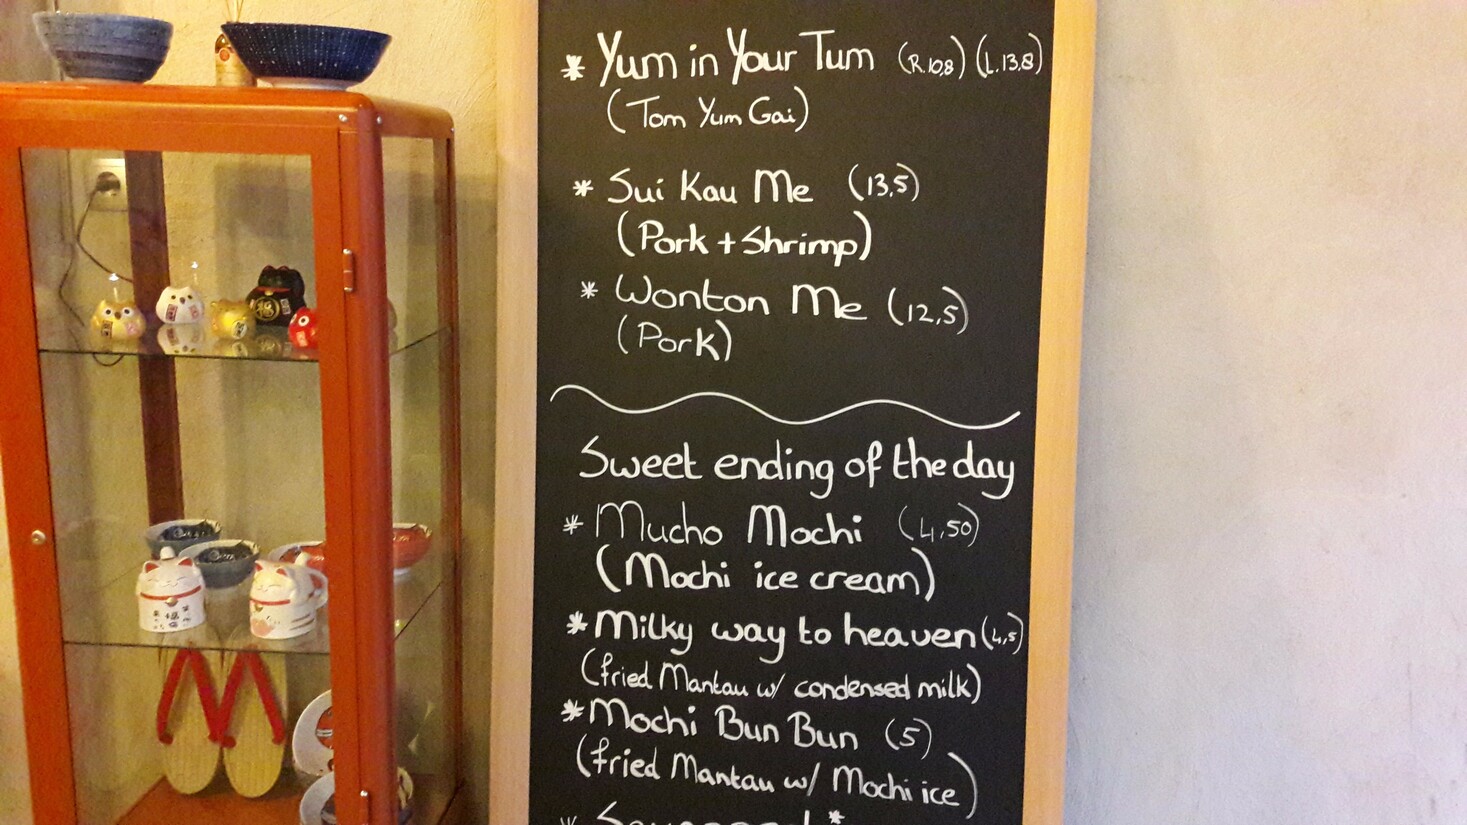 * Yum in Your Tum (R.10,8) (L.13,8)
(Tom Yum Gai)
* Sui Kau Me (13,5)
(Pork + Shrimp)
* Wonton Me (12,5)
(Pork)
Sweet ending of the day
* Mucho Mochi (4,50)
(Mochi ice cream)
* Milky way to heaven (4,5)
(fried Mantau w/ condensed milk)
* Mochi Bun Bun (5)
(fried Mantau w/ Mochi ice)